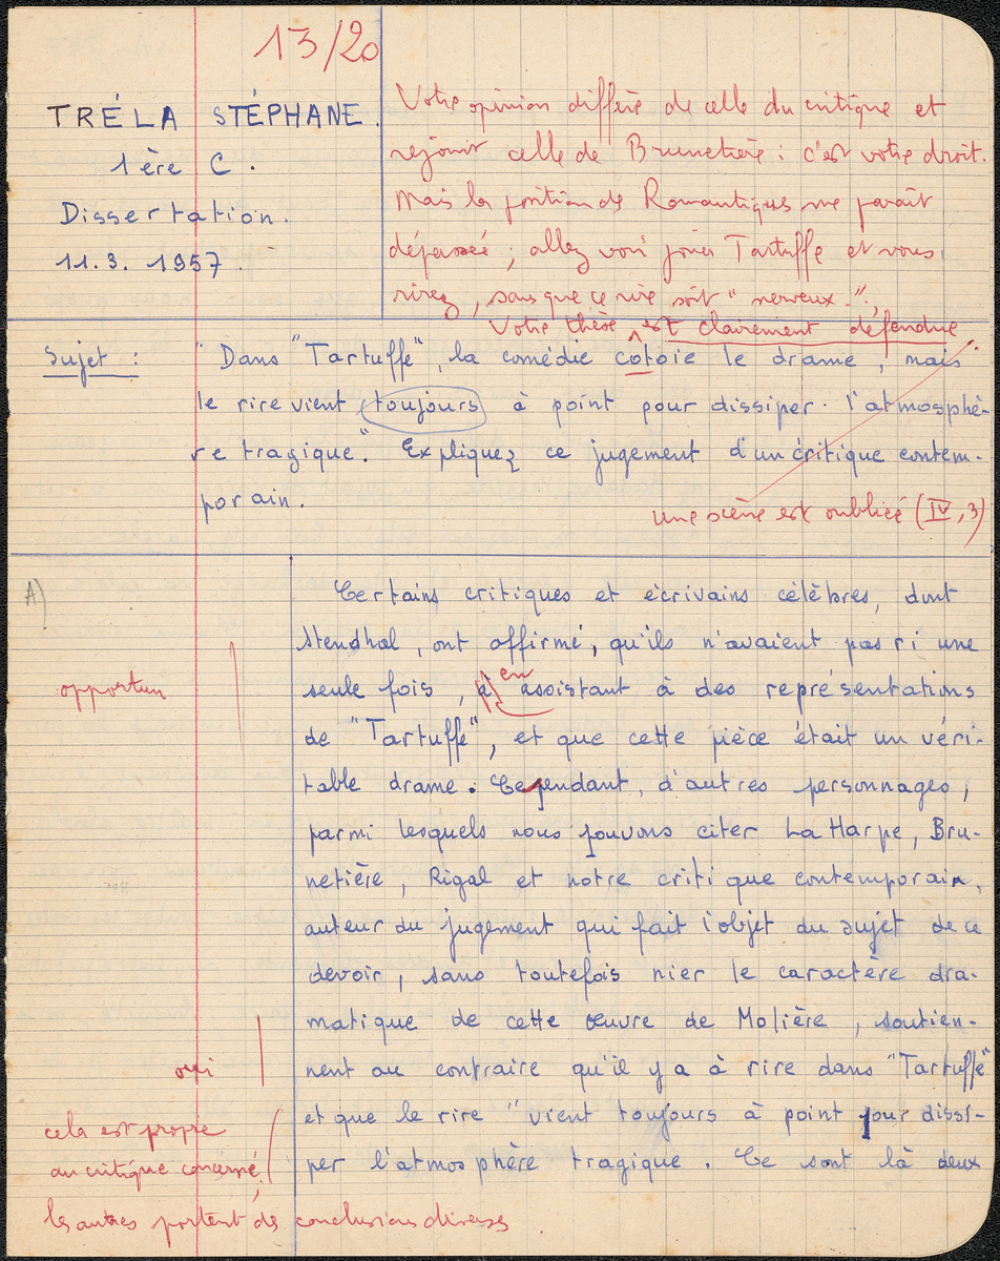 13/20
TRÉLA STÉPHANE.
1ère C.
Dissertation.
11.3.1957.
Votre opinion diffère de celle du critique et
rejoint celle de Brunetière : c'est votre droit.
Mais la position des Romantiques me paraît
dépassée ; allez voir jouer Tartuffe et vous
rirez, sans que ce rire soit "nerveux".
Votre thèse est clairement défendue
Sujet : "Dans "Tartuffe", la comédie cotoie le drame, mais
le rire vient toujours à point pour dissiper l'atmosphè-
re tragique." Expliquez ce jugement d'un critique contem-
porain.
une scène est oubliée (IV, 3)
A)
Certains critiques et écrivains célèbres, dont
Stendhal, ont affirmé, qu'ils n'avaient pas ri une
opportun
seule fois, à en assistant à des représentations
de "Tartuffe", et que cette pièce était un véri-
table drame. Cependant, d'autres personnages,
parmi lesquels nous pouvons citer La Harpe, Bru-
netière, Rigal et notre critique contemporain,
auteur du jugement qui fait l'objet du sujet de ce
devoir, sans toutefois nier le caractère dra-
matique de cette œuvre de Molière, soutien-
oui
nent au contraire qu'il y a à rire dans "Tartuffe"
et que le rire "vient toujours à point pour dissi-
per l'atmosphère tragique. Ce sont là deux
cela est propre
au critique concerné ;
les autres portent des conclusions diverses.